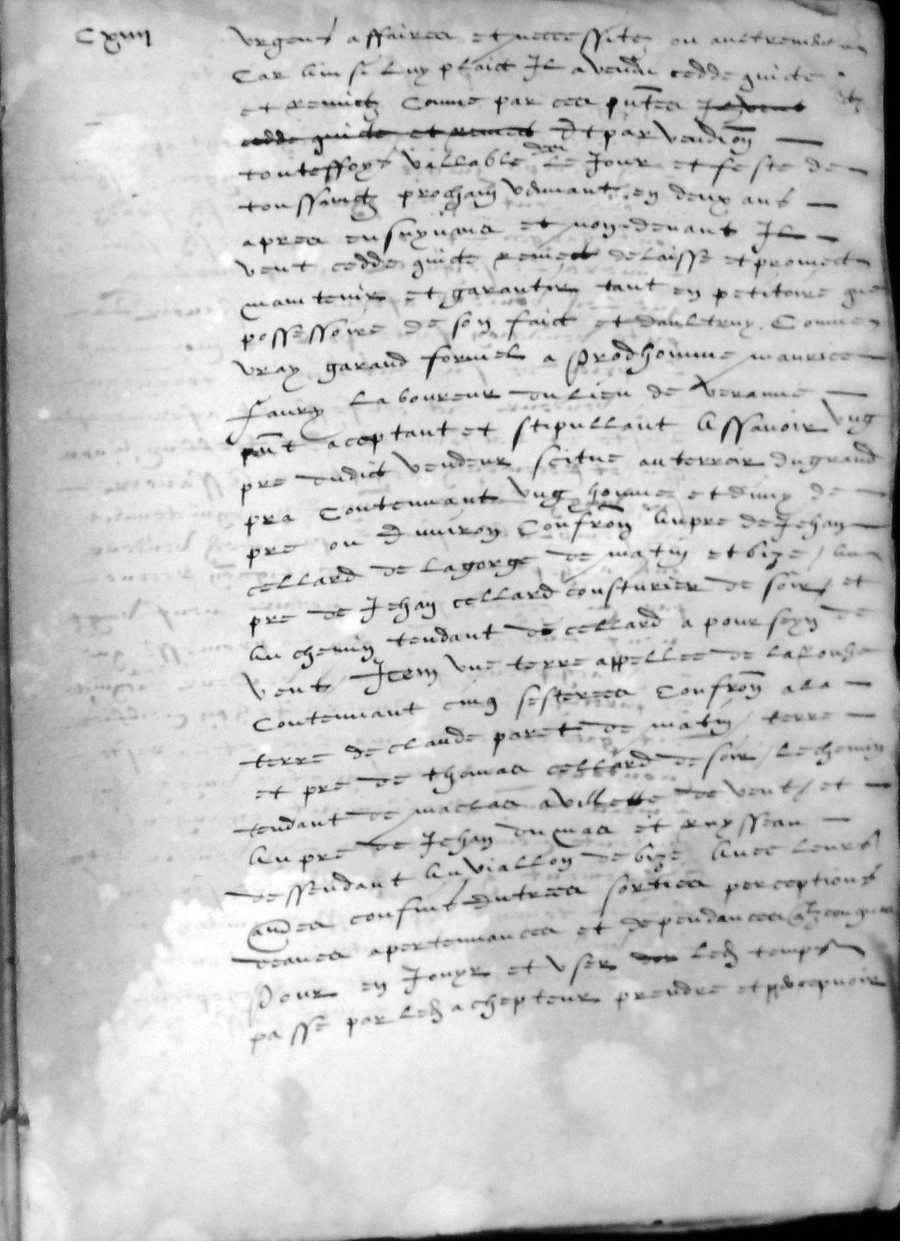 Cxiiii
urgens affaires et neccessites ou aultrement
Car ainsi luy plaict Il a vendu cedde quicte
et remictz Comme par ces pntes Il vend
cedde quicte et remect Et par vendion
touteffoys vallable des le Jour et feste de
toussainctz prochain venant en deux ans
apres ensuyvans et non devant Il
vent cedde quicte remect delaisse et promect
maintenir et garantir tant en petitoire que
possessoire de son faict et daultruy Comme
vray garand formel a Prodhomme maurice
faury laboureur du lieu de veranne
pnt aceptant et stipullant Assavoir ung
pre dudict vendeur scitue au terroir du grand
pra Contennant ung homme et demy de
pre ou Environ Confron au pre de Jehan
cellard de lagorge de matin et bize / au
pre de Jehan cellard cousturier de soir et
au chemin tendant de cellard a pourseyn de
vent Item une terre appellee de la
Contennant cinq sesterees Confron a la
terre de claude paret de matin / terre
et pre de thomas cellard de soir / le chemin
tendant de maclas a villette de vent / et
au pre de Jehan dumas et ruysseau
dessendant au viallon de bize Avec leurs
aues confins entrees sorties perceptions
deaues apertennances et dependances quelzconques
Pour en Jouyr et user led temps
passe par led achepteur prendre et percepvoir